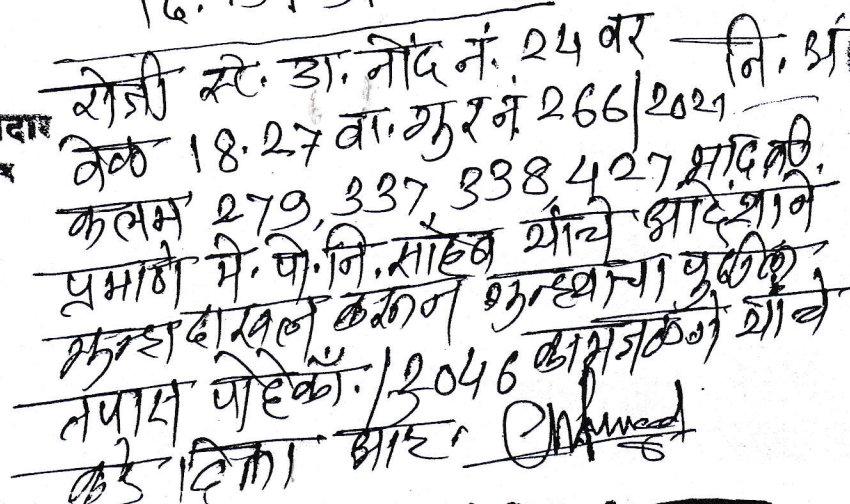 रोजी स्टे. डा. नोंद नं. 24 वर नि. अं
वेळ 18.27 वा. गुर नं 266/2021
कलम 279, 337, 338, 427 भादवी.
प्रमाणे मे. पो. नि. साहेब यांचे आदेशाने
गुन्हा दाखल करून गुन्ह्याचा पुढील
तपास पोहेकॉ. /2046 कामतकर यांचे
कडे दिला आहे.